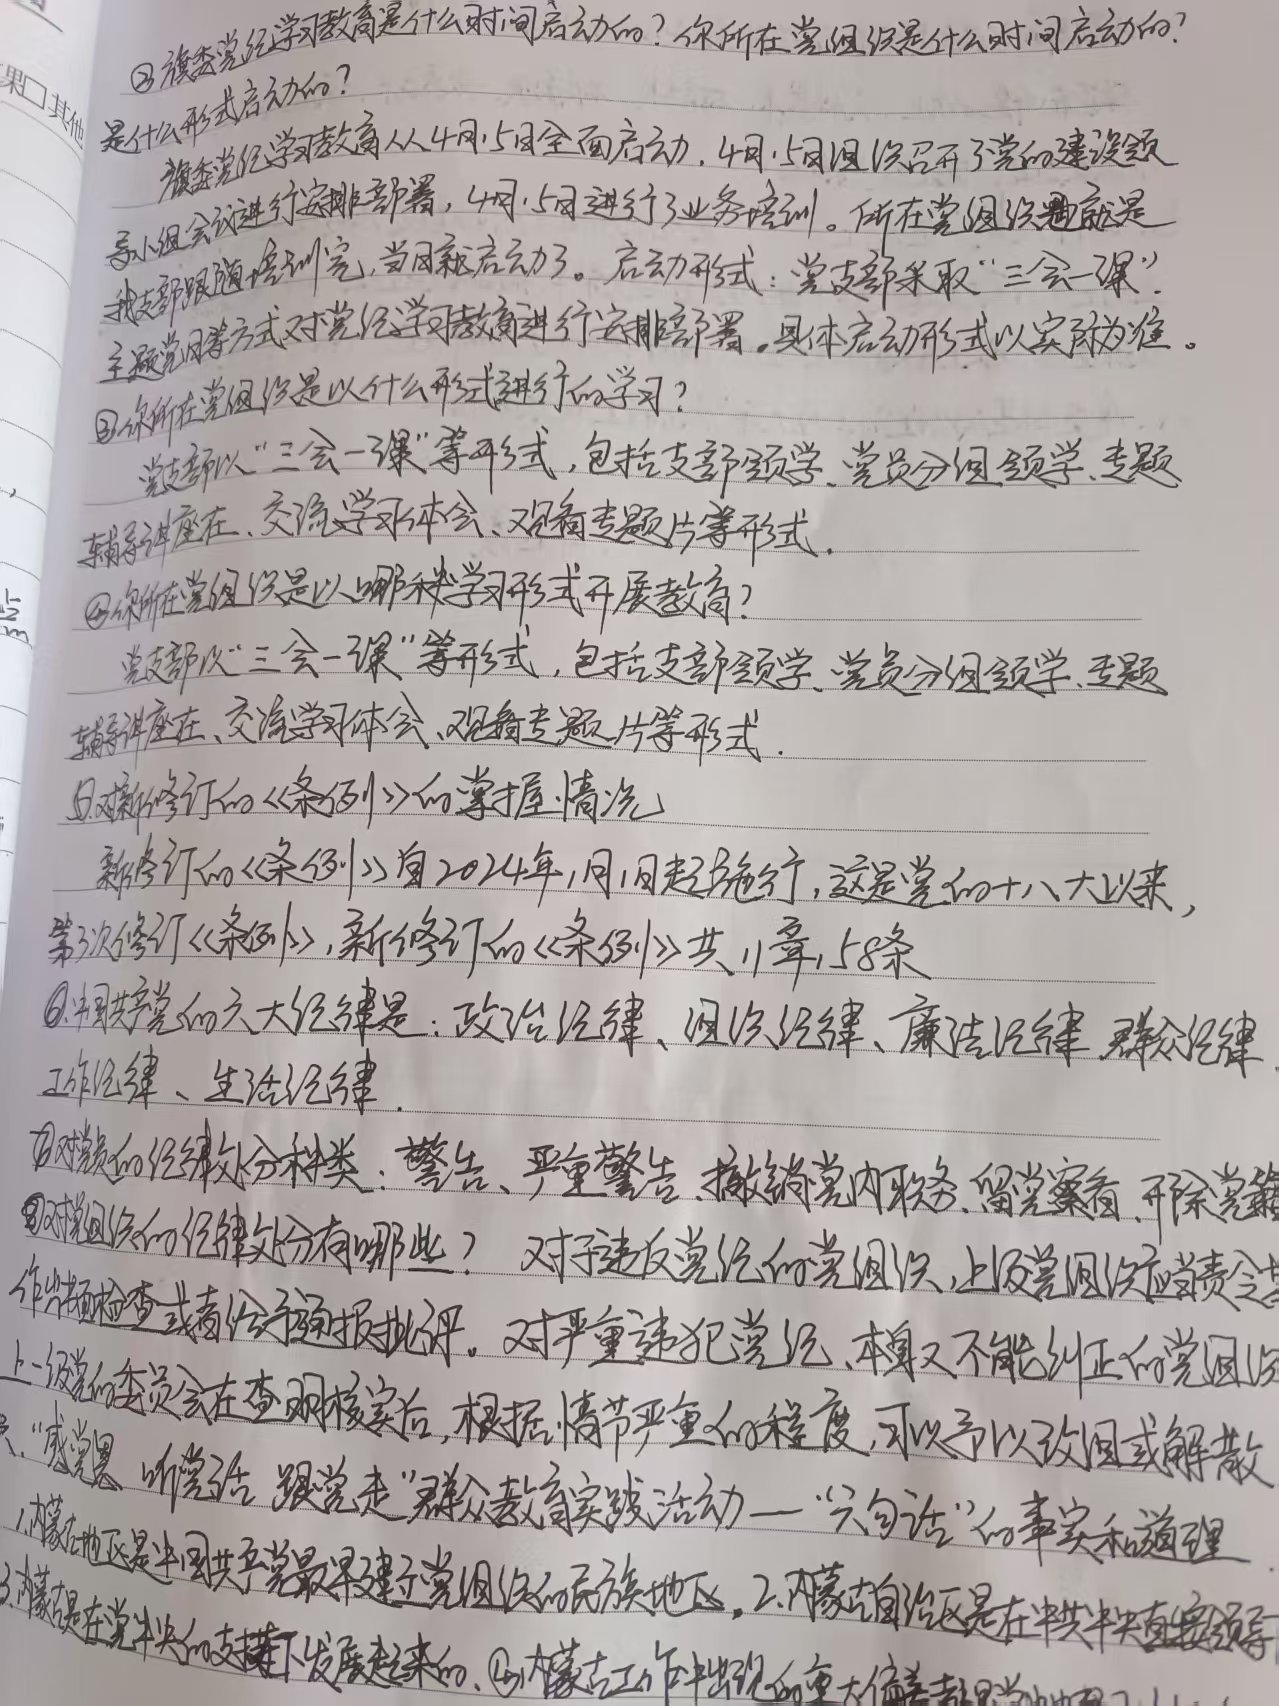 果□其他
②旗委党纪学习教育是什么时间启动的？你所在党组织是什么时间启动的？
是什么形式启动的？
旗委党纪学习教育从4月15日全面启动，4月15日组织召开了党的建设领
导小组会议进行安排部署，4月15日进行了业务培训。所在党组织就是
我支部跟随培训完，当日就启动了。启动形式：党支部采取“三会一课”、
主题党日等方式对党纪学习教育进行安排部署。具体启动形式以实际为准。
③你所在党组织是以什么形式进行的学习？
党支部以“三会一课”等形式，包括支部领学、党员分组领学、专题
辅导讲座在、交流学习体会、观看专题片等形式.
④你所在党组织是以哪种学习形式开展教育？
党支部以“三会一课”等形式，包括支部领学、党员分组领学、专题
辅导讲座在、交流学习体会、观看专题片等形式.
⑤对新修订的《条例》的掌握情况
新修订的《条例》自2024年1月1日起施行，这是党的十八大以来，
第3次修订《条例》，新修订的《条例》共11章158条
⑥中国共产党的六大纪律是：政治纪律、组织纪律、廉洁纪律、群众纪律、
工作纪律、生活纪律.
⑦对党员的纪律处分种类：警告、严重警告、撤销党内职务、留党察看、开除党籍
⑧对党组织的纪律处分有哪些？ 对于违反党纪的党组织，上级党组织应当责令其
作出书面检查或者给予通报批评。对严重违犯党纪、本身又不能纠正的党组织
上一级党的委员会在查明核实后，根据情节严重的程度，可以予以改组或解散
“感党恩 听党话 跟党走”群众教育实践活动—“六句话”的事实和道理
1.内蒙古地区是中国共产党最早建立党组织的民族地区。2.内蒙古自治区是在中共中央直接领导
3.内蒙古是在党中央的支持下发展起来的、④内蒙古工作中出现的重大偏差